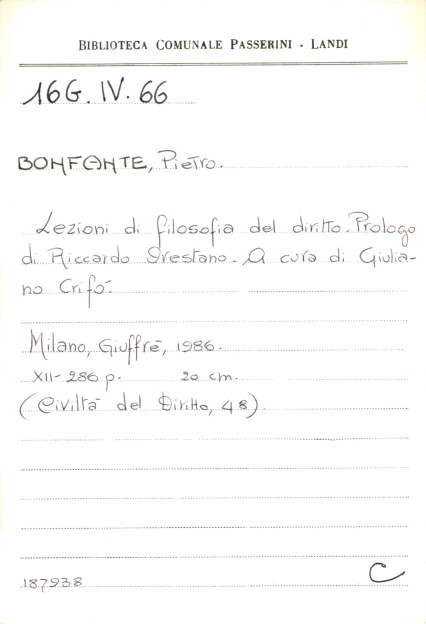 BIBLIOTECA COMUNALE PASSERINI - LANDI
16G. IV. 66
BONFANTE, Pietro.
Lezioni di filosofia del diritto. Prologo
di Riccardo Orestano. A cura di Giulia-
no Crifò.
Milano, Giuffrè, 1986.
XII-286 p. 20 cm.
(Civiltà del Diritto, 48).
187938
C